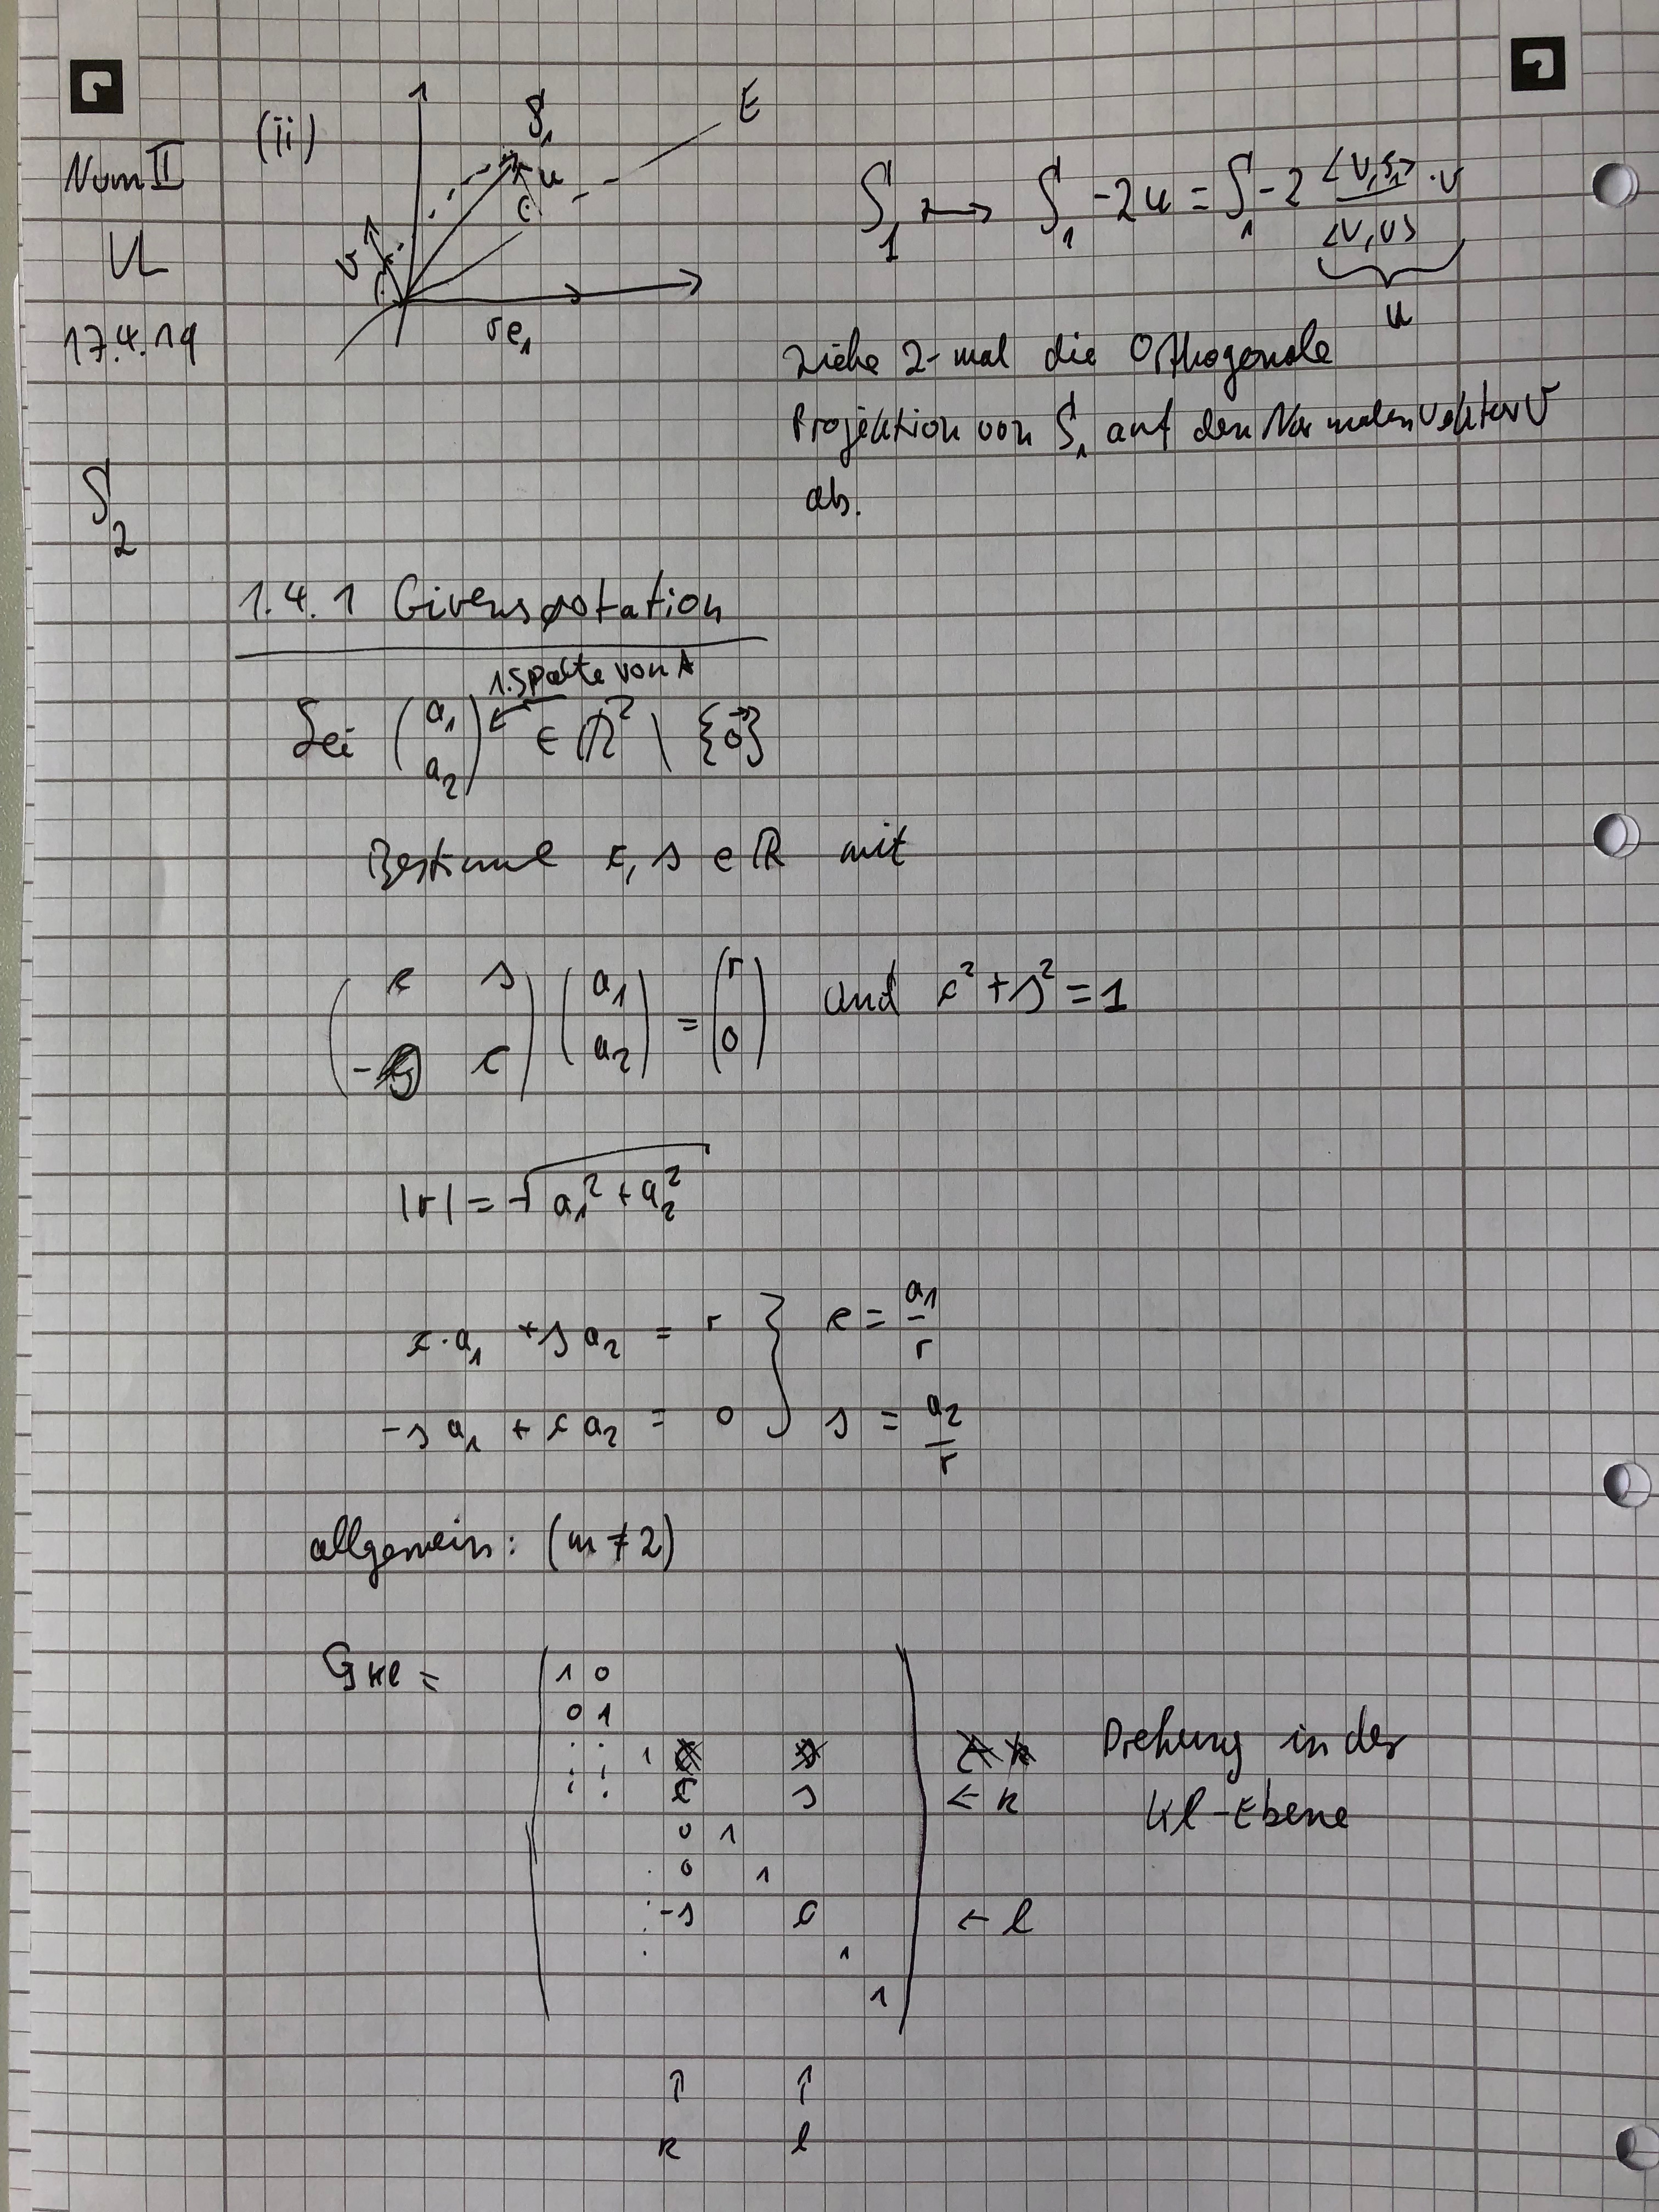 Num II
VL
17.4.19
S₂
(ii)
1
S₁
E
u
v
re₁
S₁ ↦ S₁ - 2u = S₁ - 2 <v,S₁>/<v,v> · v
u
Ziehe 2-mal die Orthogonale
Projektion von S₁ auf den Normalenvektor v
ab.
1.4.1 Givensrotation
1. Spalte von A
Sei (a₁ a₂) ← ∈ ℝ² \ {0⃗}
Bestimme c, s ∈ ℝ mit
( c s ) ( a₁ ) = ( r ) und c² + s² = 1
( -s c ) ( a₂ ) ( 0 )
|r| = √(a₁² + a₂²)
c·a₁ + s a₂ = r } c = a₁/r
-s a₁ + c a₂ = 0 } s = a₂/r
allgemein: (m ≠ 2)
Gₖₗ = 1 0
0 1
1
c s ← k
Drehung in der
kl-Ebene
0 1
0 1
-s c ← l
1
1
↑ ↑
k l